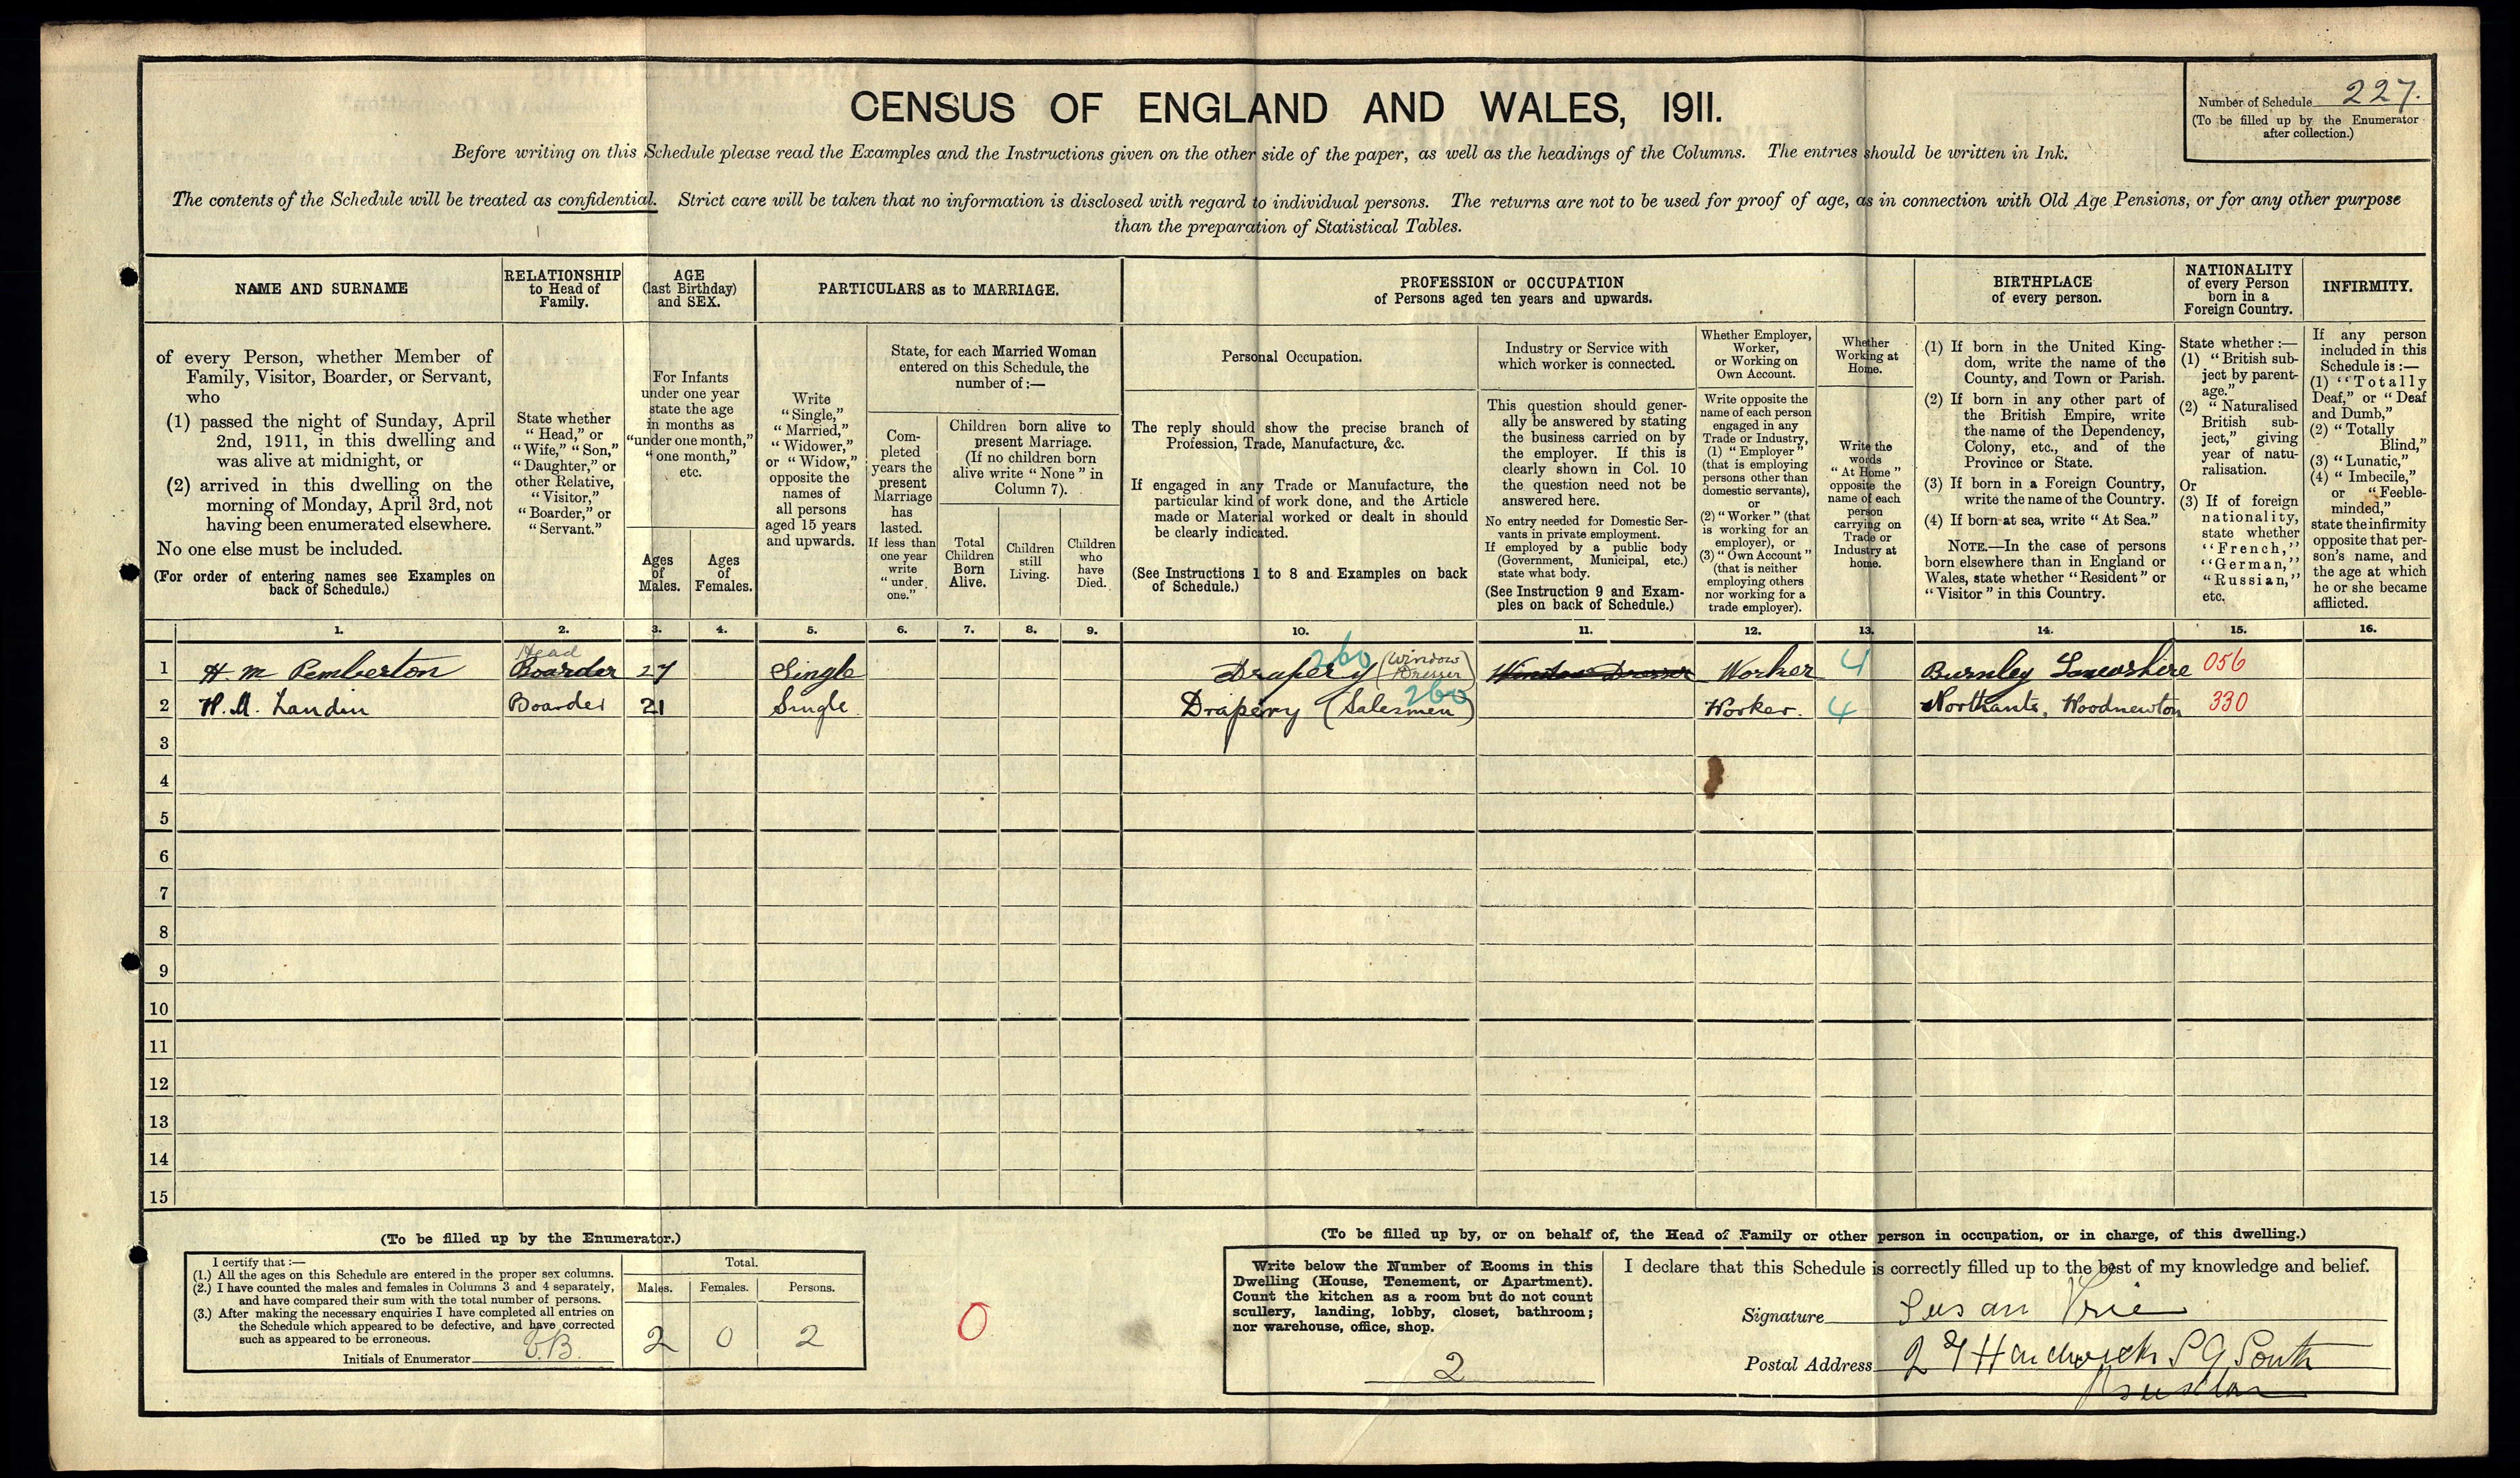 CENSUS OF ENGLAND AND WALES, 1911.
Number of Schedule 227.
(To be filled up by the Enumerator
after collection.)
Before writing on this Schedule please read the Examples and the Instructions given on the other side of the paper, as well as the headings of the Columns. The entries should be written in Ink.
The contents of the Schedule will be treated as confidential. Strict care will be taken that no information is disclosed with regard to individual persons. The returns are not to be used for proof of age, as in connection with Old Age Pensions, or for any other purpose
than the preparation of Statistical Tables.
NAME AND SURNAME
of every Person, whether Member of
Family, Visitor, Boarder, or Servant,
who
(1) passed the night of Sunday, April
2nd, 1911, in this dwelling and
was alive at midnight, or
(2) arrived in this dwelling on the
morning of Monday, April 3rd, not
having been enumerated elsewhere.
No one else must be included.
(For order of entering names see Examples on
back of Schedule.)
RELATIONSHIP
to Head of
Family.
State whether
"Head," or
"Wife," "Son,"
"Daughter," or
other Relative,
"Visitor,"
"Boarder," or
"Servant."
AGE
(last Birthday)
and SEX.
For Infants
under one year
state the age
in months as
"under one month,"
"one month,"
etc.
Ages
of
Males.
Ages
of
Females.
PARTICULARS as to MARRIAGE.
Write
"Single,"
"Married,"
"Widower,"
or "Widow,"
opposite the
names of
all persons
aged 15 years
and upwards.
State, for each Married Woman
entered on this Schedule, the
number of:—
Com-
pleted
years the
present
Marriage
has
lasted.
If less than
one year
write
"under
one."
Children born alive to
present Marriage.
(If no children born
alive write "None" in
Column 7).
Total
Children
Born
Alive.
Children
still
Living.
Children
who
have
Died.
PROFESSION or OCCUPATION
of Persons aged ten years and upwards.
Personal Occupation.
The reply should show the precise branch of
Profession, Trade, Manufacture, &c.
If engaged in any Trade or Manufacture, the
particular kind of work done, and the Article
made or Material worked or dealt in should
be clearly indicated.
(See Instructions 1 to 8 and Examples on back
of Schedule.)
Industry or Service with
which worker is connected.
This question should gener-
ally be answered by stating
the business carried on by
the employer. If this is
clearly shown in Col. 10
the question need not be
answered here.
No entry needed for Domestic Ser-
vants in private employment.
If employed by a public body
(Government, Municipal, etc.)
state what body.
(See Instruction 9 and Exam-
ples on back of Schedule.)
Whether Employer,
Worker,
or Working on
Own Account.
Write opposite the
name of each person
engaged in any
Trade or Industry,
(1) "Employer"
(that is employing
persons other than
domestic servants),
or
(2) "Worker" (that
is working for an
employer), or
(3) "Own Account"
(that is neither
employing others
nor working for a
trade employer).
Whether
Working at
Home.
Write the
words
"At Home"
opposite the
name of each
person
carrying on
Trade or
Industry at
home.
BIRTHPLACE
of every person.
(1) If born in the United King-
dom, write the name of the
County, and Town or Parish.
(2) If born in any other part of
the British Empire, write
the name of the Dependency,
Colony, etc., and of the
Province or State.
(3) If born in a Foreign Country,
write the name of the Country.
(4) If born at sea, write "At Sea."
NOTE.—In the case of persons
born elsewhere than in England or
Wales, state whether "Resident" or
"Visitor" in this Country.
NATIONALITY
of every Person
born in a
Foreign Country.
State whether:—
(1) "British sub-
ject by parent-
age."
(2) "Naturalised
British sub-
ject," giving
year of natu-
ralisation.
Or
(3) If of foreign
nationality,
state whether
"French,"
"German,"
"Russian,"
etc.
INFIRMITY.
If any person
included in this
Schedule is:—
(1) "Totally
Deaf," or "Deaf
and Dumb,"
(2) "Totally
Blind,"
(3) "Lunatic,"
(4) "Imbecile,"
or "Feeble-
minded,"
state the infirmity
opposite that per-
son's name, and
the age at which
he or she became
afflicted.
1. 2. 3. 4. 5. 6. 7. 8. 9. 10. 11. 12. 13. 14. 15. 16.
Head
1 H. M Pemberton Boarder 27 Single Drapery (Window Dresser) 260 Window Dresser Worker 4 Burnley Lancashire 056
2 H. M. Landin Boarder 21 Single Drapery (Salesmen) 260 Worker. 4 Northants, Woodnewton 330
3
4
5
6
7
8
9
10
11
12
13
14
15
(To be filled up by the Enumerator.)
I certify that:—
(1.) All the ages on this Schedule are entered in the proper sex columns.
(2.) I have counted the males and females in Columns 3 and 4 separately,
and have compared their sum with the total number of persons.
(3.) After making the necessary enquiries I have completed all entries on
the Schedule which appeared to be defective, and have corrected
such as appeared to be erroneous.
Initials of Enumerator
Total.
Males. Females. Persons.
2 0 2
0
(To be filled up by, or on behalf of, the Head of Family or other person in occupation, or in charge, of this dwelling.)
Write below the Number of Rooms in this
Dwelling (House, Tenement, or Apartment).
Count the kitchen as a room but do not count
scullery, landing, lobby, closet, bathroom;
nor warehouse, office, shop.
2
I declare that this Schedule is correctly filled up to the best of my knowledge and belief.
Signature Susan
Postal Address South